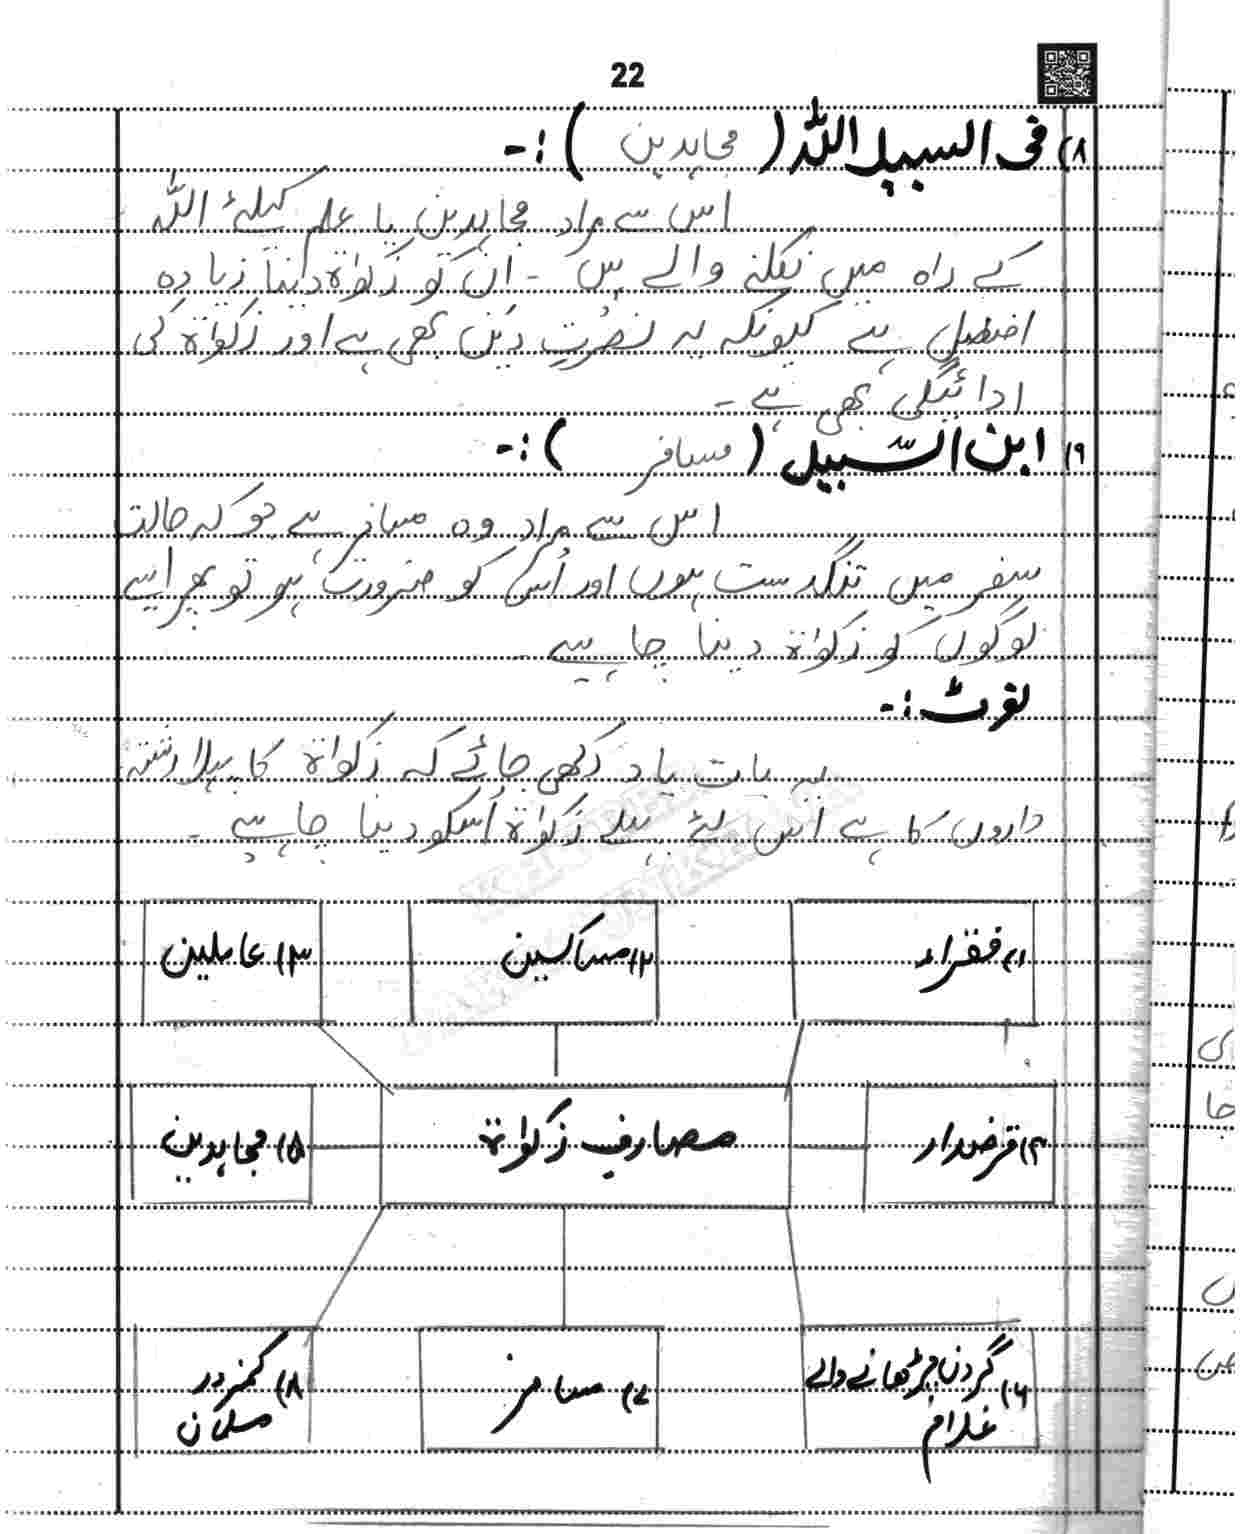 22
۸) فی السبیل اللہ ( مجاہدین ) :-
اس سے مراد مجاہدین یا علم کیلئے اللہ
کے راہ میں نکلنے والے ہیں ۔ ان کو زکوٰۃ دینا زیادہ
افضل ہے کیونکہ یہ نصرتِ دین بھی ہے اور زکوٰۃ کی
ادائیگی بھی ہے ۔
۹) ابن السّبیل ( مسافر ) :-
اس سے مراد وہ مسافر ہے جو کہ حالت
سفر میں تنگدست ہوں اور اُس کو ضرورت ہو تو پھر ایسے
لوگوں کو زکوٰۃ دینا چاہیے ۔
نوٹ :-
یہ بات یاد رکھی جائے کہ زکوٰۃ کا پہلا رشتہ
داروں کا ہے اس لئے پہلے زکوٰۃ اُسکو دینا چاہیے ۔
۱) فقراء
۲) مساکین
۳) عاملین
۴) قرضدار
مصارف زکوٰۃ
۵) مجاہدین
۶) گردن چڑھانے والے
غلام
۷) مسافر
۸) کمزور
مسلمان